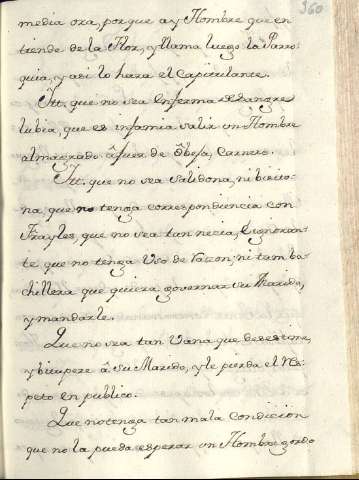 360
media ora, porque ay Hombre que en
tiende de la Flor, y llama luego la Parro
quia, y asi lo hara el Capitulante.
Ytt. que no sea enferma de sangre
lubia, que es infamia salir un Hombre
almagrado â fuer de Obeja, Carnero.
Ytt. que no sea salidona, ni bisito-
na, que no tenga correspondencia con
Frayles, que no sea tan necia, è ignoran-
te que no tenga Uso de razon; ni tan ba-
chillera que quiera governar su Marido,
y mandarle.
Que no sea tan Vana que desestime,
y bitupere â su Marido, y le pierda el res-
peto en publico.
Que no tenga tan mala Condicion
que no la pueda esperar un Hombre gordo